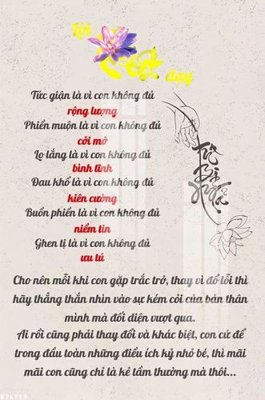 Lời
Phật
dạy
Tức giận là vì con không đủ
rộng lượng
Phiền muộn là vì con không đủ
cởi mở
Lo lắng là vì con không đủ
bình tĩnh
Đau khổ là vì con không đủ
kiên cường
Buồn phiền là vì con không đủ
niềm tin
Ghen tị là vì con không đủ
ưu tú
Cho nên mỗi khi con gặp trắc trở, thay vì đổ lỗi thì
hãy thẳng thắn nhìn vào sự kém cỏi của bản thân
mình mà đối diện vượt qua.
Ai rồi cũng phải thay đổi và khác biệt, con cứ để
trong đầu toàn những điều ích kỷ nhỏ bé, thì mãi
mãi con cũng chỉ là kẻ tầm thường mà thôi...